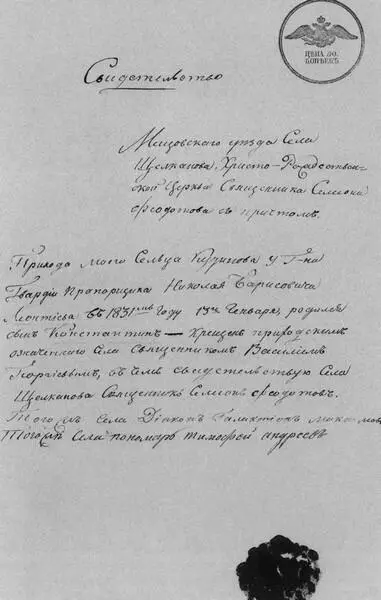 ЦѢНА 30.
КОПѢЕКЪ.
Свидетельство
Мещовскаго уезда Села
Щелканова, Христо-Рождествен-
ской Церкви Священника Симеона
Феодотова съ притомъ.
Прихода моего Сельца Кудинова у Г-на
Гвардіи Прапорщика Николая Барисовича
Леонтьева въ 1831мъ году 13го Генваря, родился
сынъ Константинъ — Крещенъ приходскимъ
означеннаго Села Священникомъ Василіемъ
Георгіевымъ, въ чемъ свидетельствую Села
Щелканова Священникъ Симеонъ Феодотовъ.
Тогожъ села Діаконъ Галактіонъ
Тогожъ Села пономарь Тимофей Андреевъ